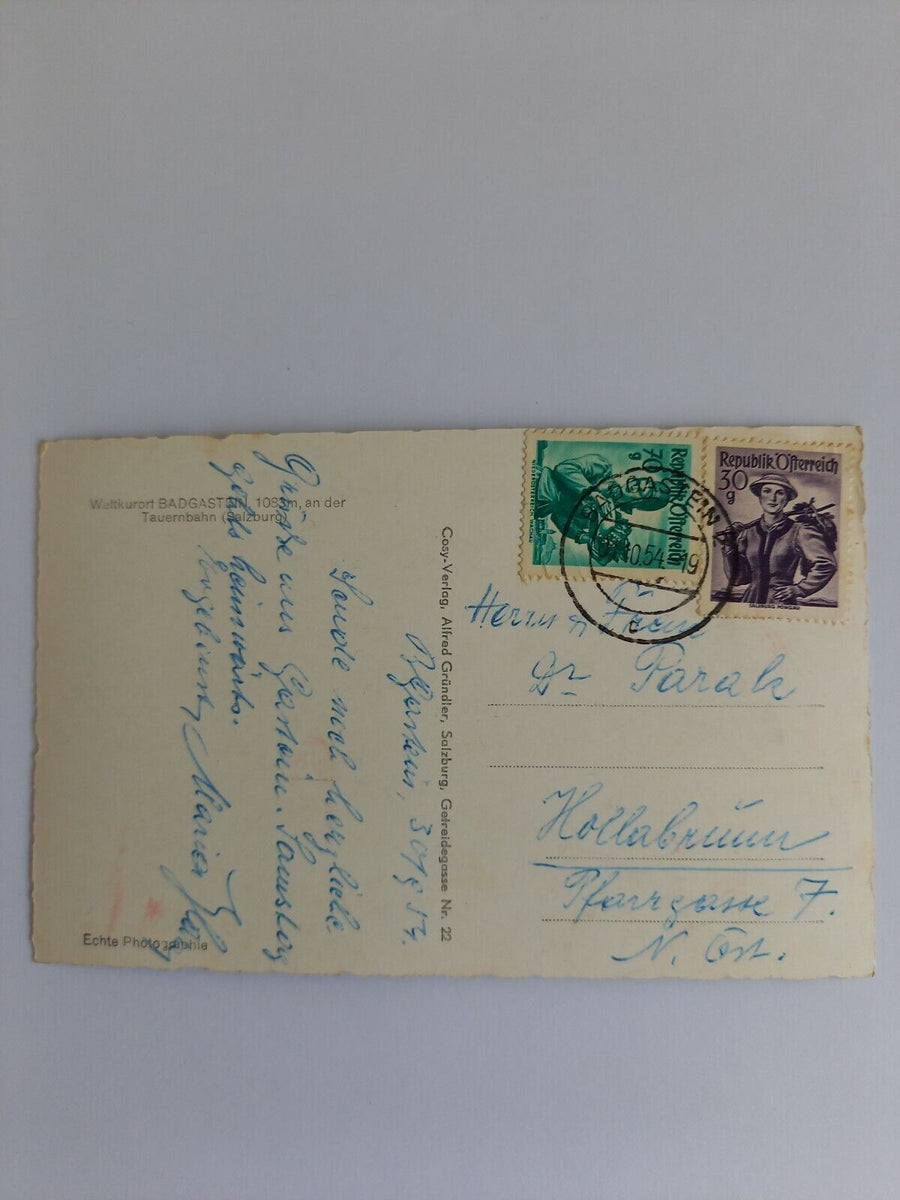 Weltkurort BADGASTEIN, 1083 m, an der
Tauernbahn (Salzburg)
30/9 54.
Sende noch herzliche
Grüße aus Gastein. Samstag
geht's heimwärts.
Ergebenst, Maria
Echte Photographie
Cosy-Verlag, Alfred Gründler, Salzburg, Getreidegasse Nr. 22
Republik Österreich
70 g
Republik Österreich
30 g
SALZBURG PONGAU
BADGASTEIN
10.54-19
c
Herrn u Frau
Dr Parak
Hollabrunn
Pfarrgasse 7.
N. Öst.